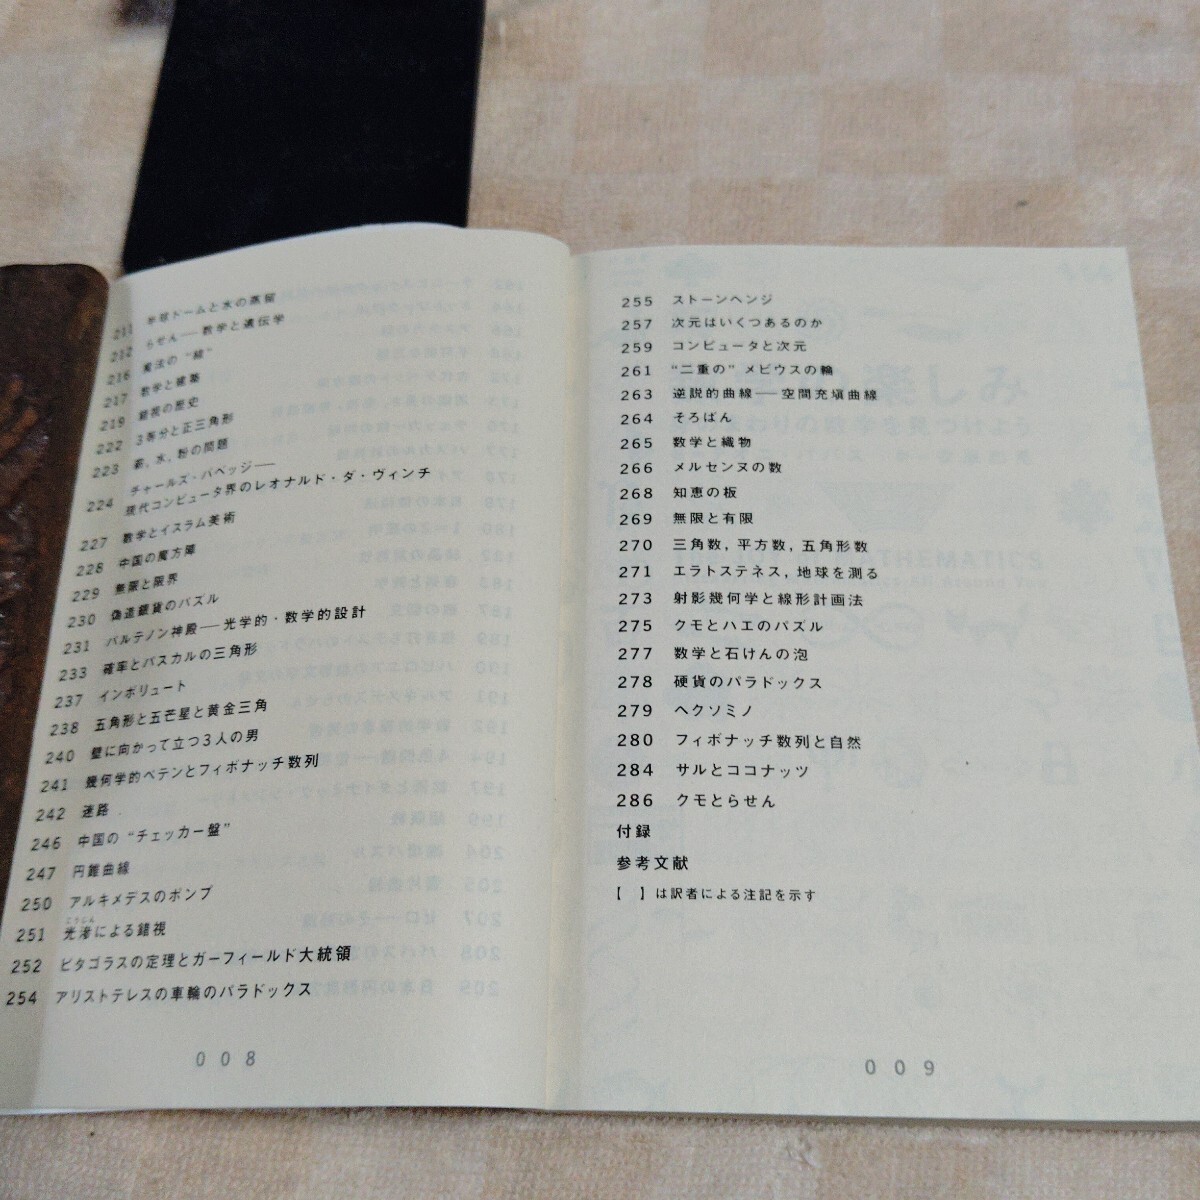 211 半球ドームと水の蒸留
212 らせん──数学と遺伝学
216 魔法の“線”
217 数学と建築
219 錯視の歴史
222 3等分と正三角形
223 薪，水，粉の問題
224 チャールズ・バベッジ──
現代コンピュータ界のレオナルド・ダ・ヴィンチ
227 数学とイスラム美術
228 中国の魔方陣
229 無限と限界
230 偽造銀貨のパズル
231 パルテノン神殿──光学的・数学的設計
233 確率とパスカルの三角形
237 インボリュート
238 五角形と五芒星と黄金三角
240 壁に向かって立つ3人の男
241 幾何学的ペテンとフィボナッチ数列
242 迷路
246 中国の“チェッカー盤”
247 円錐曲線
250 アルキメデスのポンプ
こうしん
251 光滲による錯視
252 ピタゴラスの定理とガーフィールド大統領
254 アリストテレスの車輪のパラドックス
008
255 ストーンヘンジ
257 次元はいくつあるのか
259 コンピュータと次元
261 “二重の”メビウスの輪
263 逆説的曲線──空間充塡曲線
264 そろばん
265 数学と織物
266 メルセンヌの数
268 知恵の板
269 無限と有限
270 三角数，平方数，五角形数
271 エラトステネス，地球を測る
273 射影幾何学と線形計画法
275 クモとハエのパズル
277 数学と石けんの泡
278 硬貨のパラドックス
279 ヘクソミノ
280 フィボナッチ数列と自然
284 サルとココナッツ
286 クモとらせん
付録
参考文献
［　］は訳者による注記を示す
009